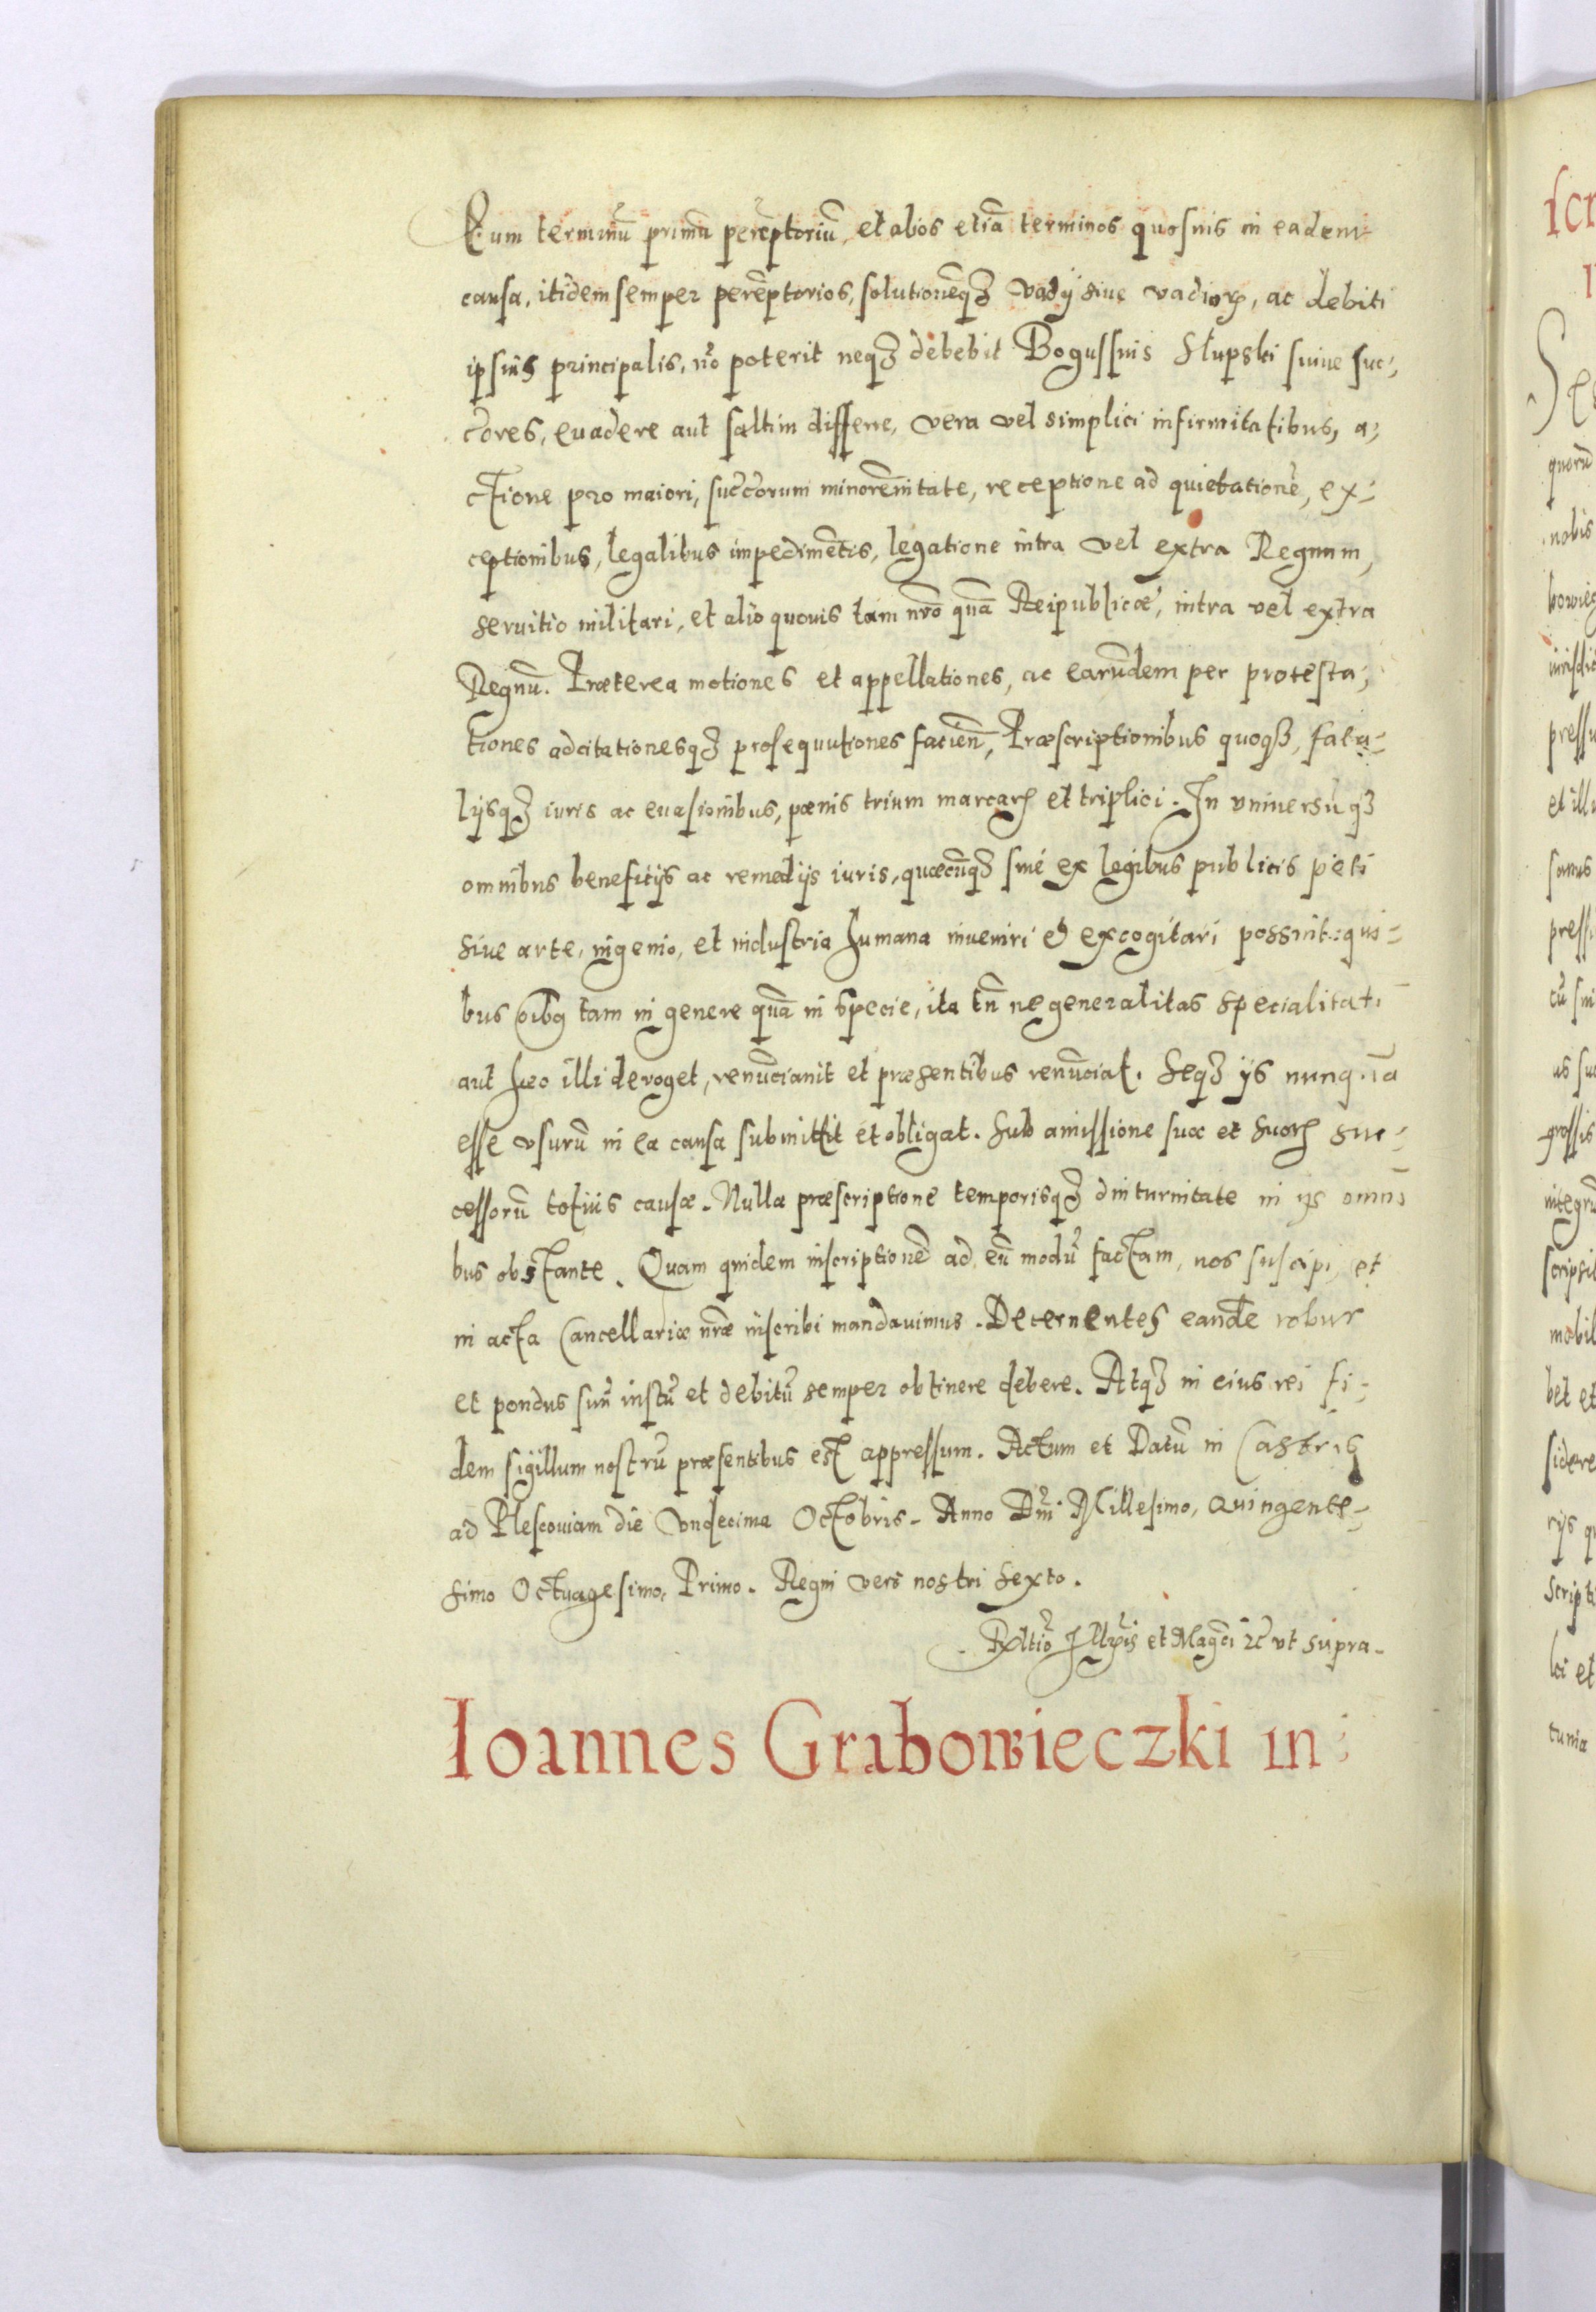 Eum terminũ primũ perẽptoriũ, et alios etiã terminos quosuis in eadem
causa, itidem semper perẽptorios, solutionẽqꝫ vadij siue vadioꝝ, ac debiti
ipsius principalis, nõ poterit neqꝫ debebit Bogussius Słupski suiue suc-
c̃ores, euadere aut saltim differre, vera vel simplici infirmitatibus, a-
ctione pro maiori, succ̃orum minorẽnitate, receptione ad quietationẽ, ex-
ceptionibus, legalibus impedimẽtis, legatione intra vel extra Regnum,
seruitio militari, et alio quouis tam nrõ quã Reipublicæ, intra vel extra
Regnũ. Præterea motiones et appellationes, ac earũdem per protesta-
tiones adcitationesqꝫ prosequutiones facieñ, Præscriptionibus quoqꝫ, fata-
lijsqꝫ iuris ac euasionibus, pœnis trium marcaꝝ et triplici. In vniuersũqꝫ
omnibus beneficijs ac remedijs iuris, quæcũqꝫ siue ex legibus publicis peti
siue arte, ingenio, et industria humana inueniri & excogitari possint: qui-
bus oĩbꝯ tam in genere quã in specie, ita tñ ne generalitas specialitati
aut hæc illi deroget, renũciauit et præsentibus renũciat. Seqꝫ ijs nunquã
esse vsurũ in ea causa submittit et obligat. Sub amissione suæ et suoꝝ suc-
cessorũ totius causæ. Nulla præscriptione temporisqꝫ diuturnitate in ijs omni-
bus obstante. Quam quidem inscriptionẽ ad eũ modũ factam, nos suscipi, et
in acta Cancellariæ nr̃æ inscribi mandauimus. Decernentes eandẽ robur
et pondus suũ iustũ et debitũ semper obtinere debere. Atqꝫ in eius rei fi-
dem sigillum nostrũ præsentibus est appressum. Actum et Datũ in Castris
ad Plescouiam die Vndecima Octobris. Anno Dñi Millesimo, Quingente-
simo Octuagesimo, Primo. Regni vero nostri sexto.
Rltio Illris et Magci ꝛc vt supra.
Ioannes Grabowieczki in-